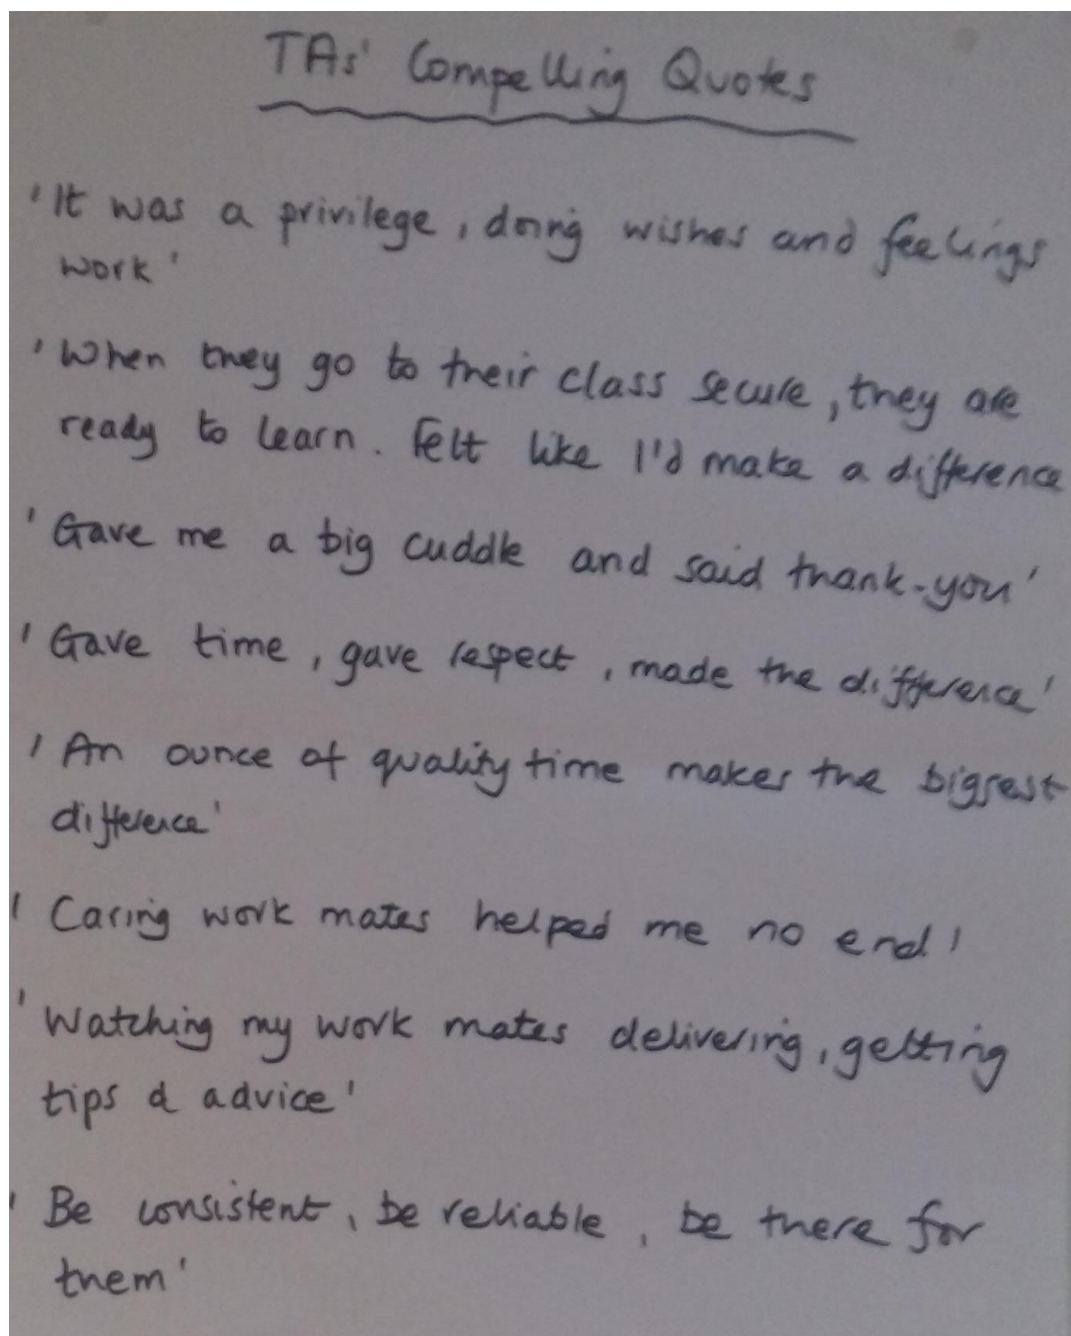 TAs' Compelling Quotes
'It was a privilege, doing wishes and feelings
work'
'When they go to their class secure, they are
ready to learn. Felt like I'd make a difference
'Gave me a big cuddle and said thank-you'
'Gave time, gave respect, made the difference'
'An ounce of quality time makes the biggest
difference'
'Caring work mates helped me no end'
'Watching my work mates delivering, getting
tips & advice'
'Be consistent, be reliable, be there for
them'